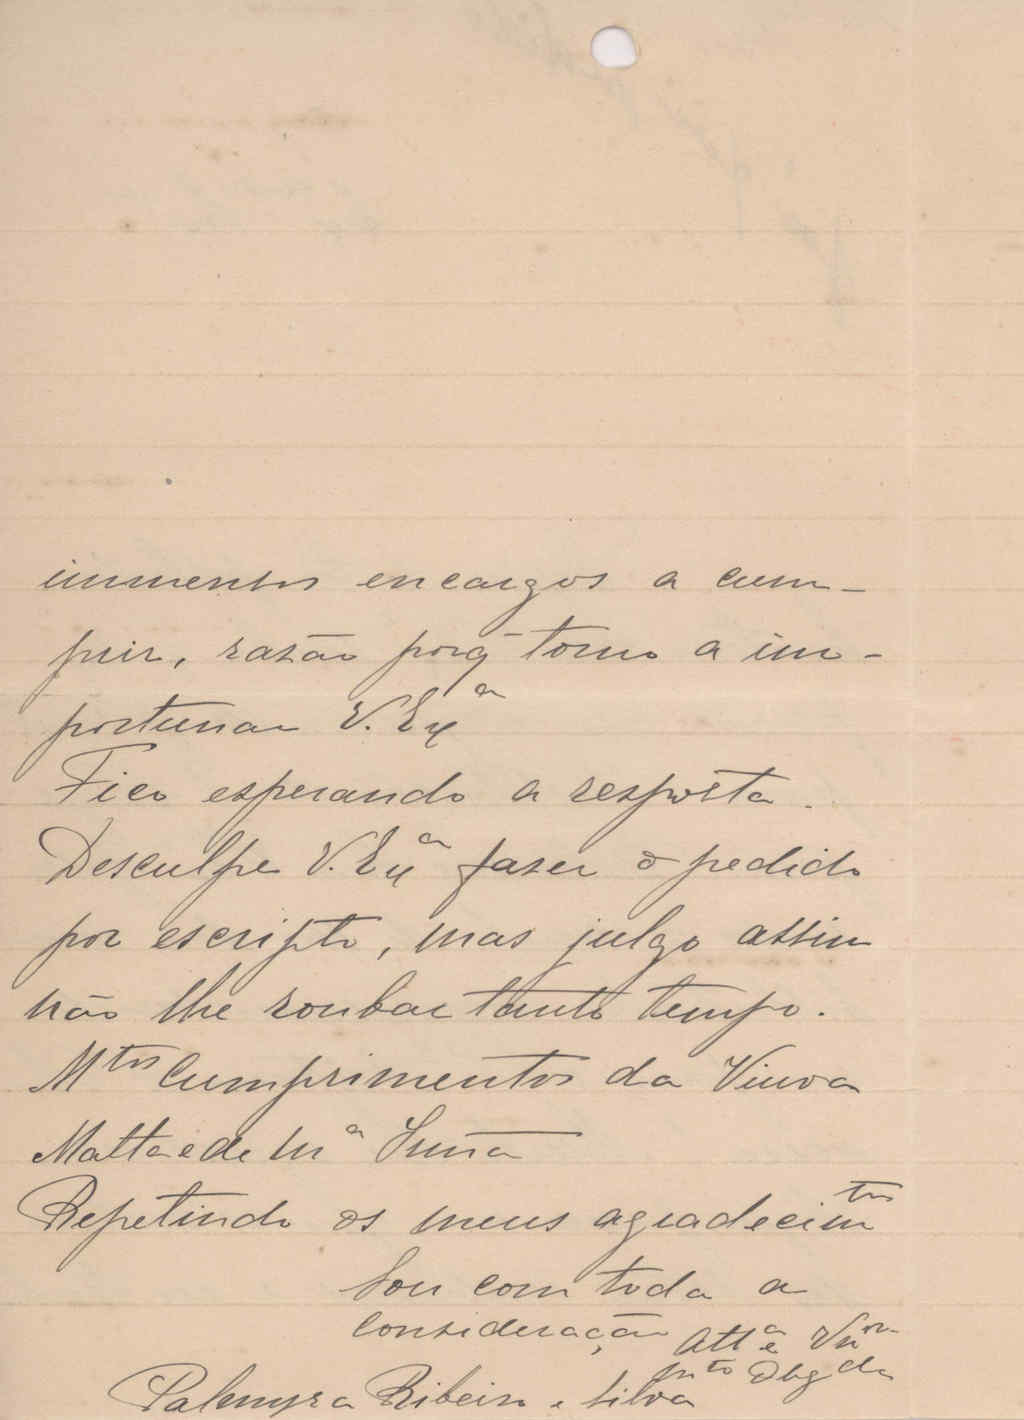 immensos encargos a cum-
prir, rasão porq̃ torno a im-
portunar V. Exª
Fico esperando a resposta.
Desculpe V. Exª faser o pedido
por escripto, mas julgo assim
não lhe roubar tanto tempo.
Mtos Cumprimentos da Viuva
Matta e de Mª
Repetindo os meus agradecimtos
Sou com toda a
Consideração Attª e Vnra
mto Obgda
Palmyra Ribeiro e Silva